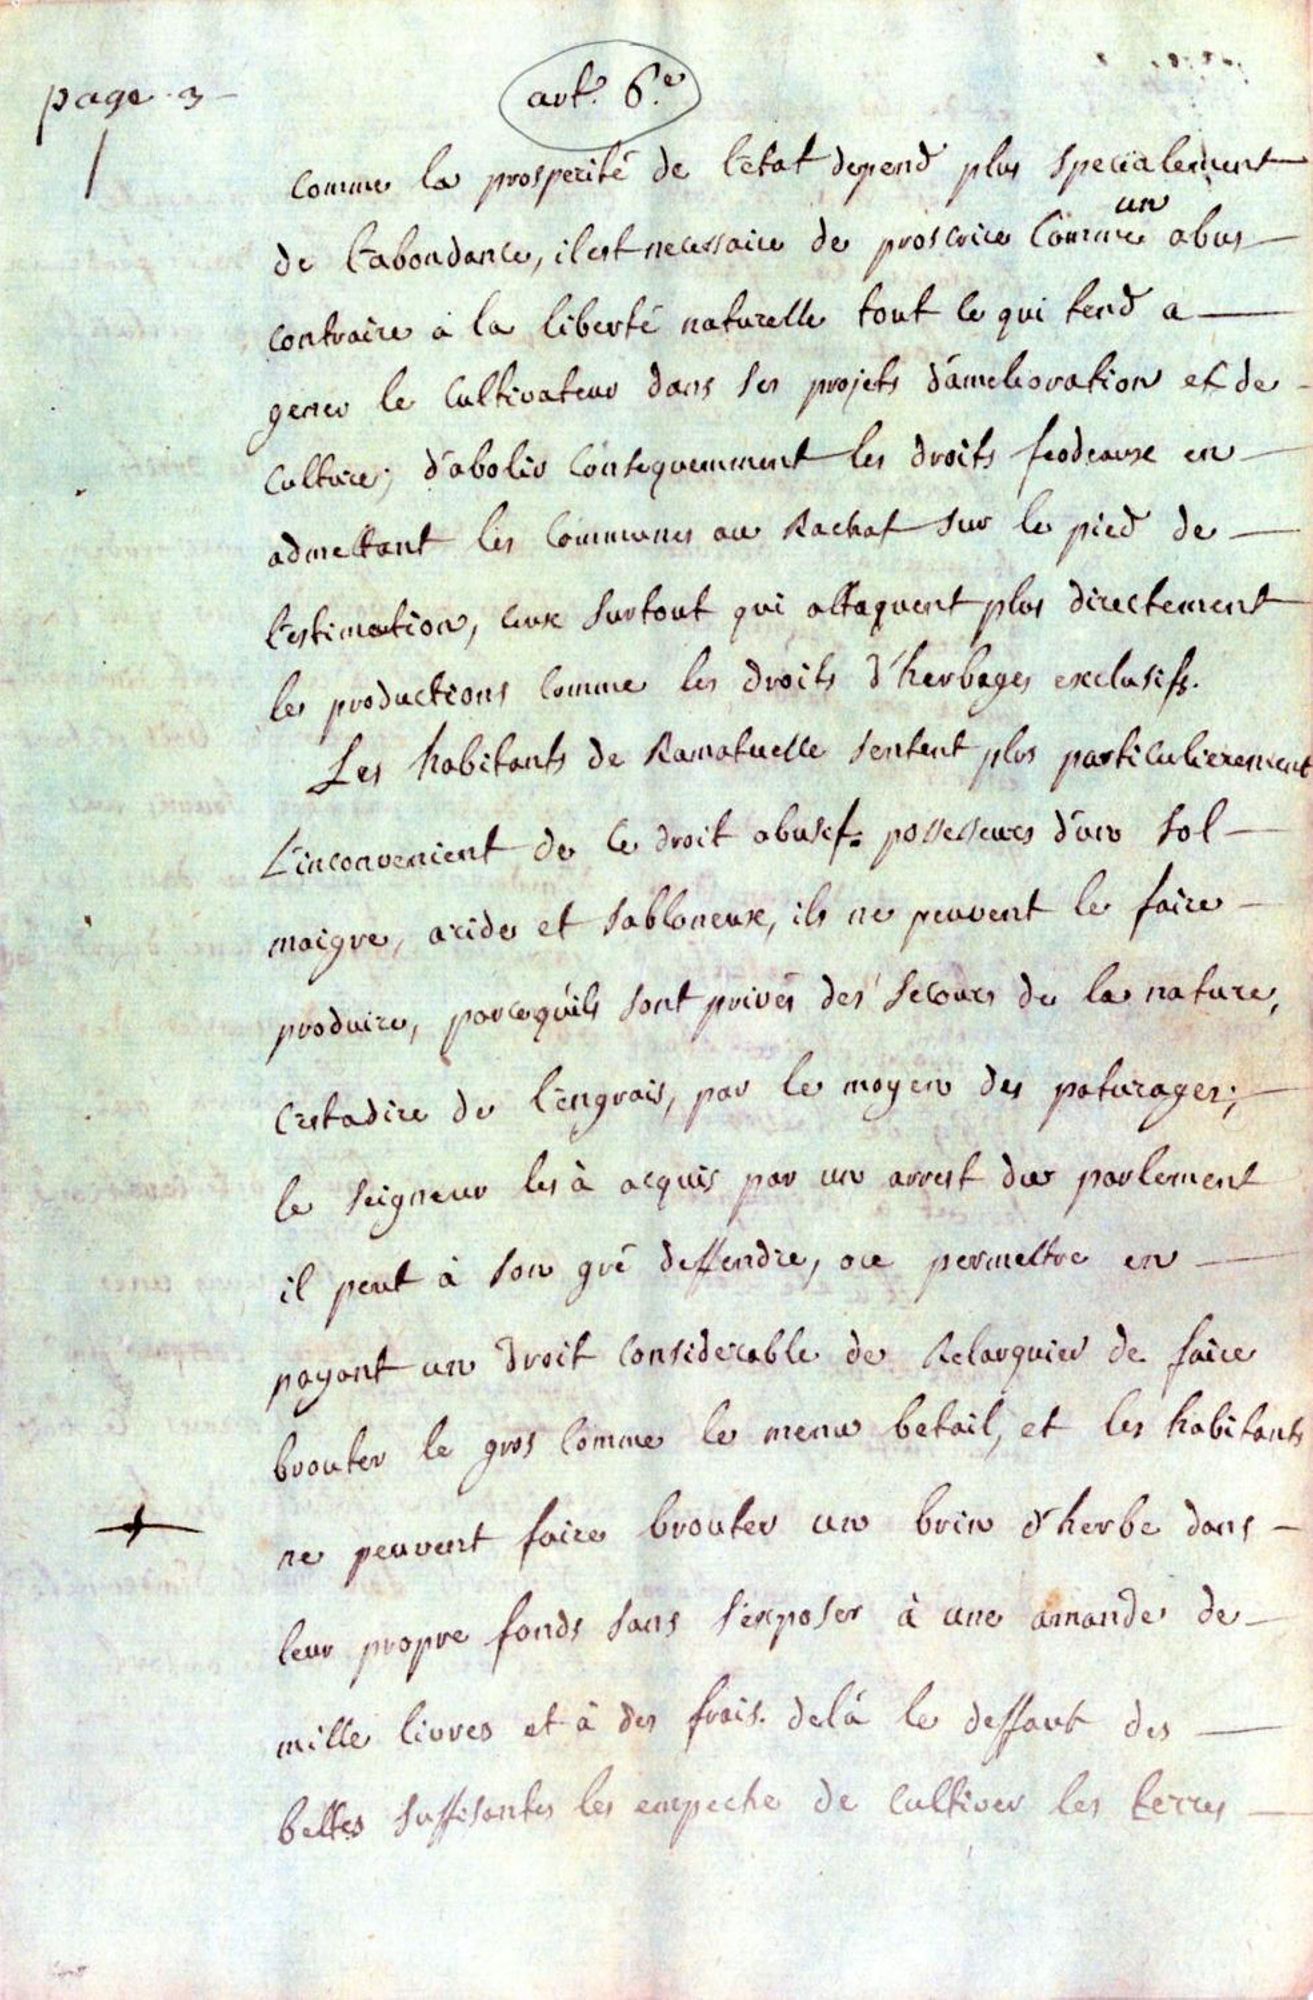 page 3
art. 6.e
comme la prosperité de l'état depend plus specialement
de l'abondance, il est necessaire de proscrire comme un abus
contraire à la liberté naturelle tout ce qui tend a
gener le cultivateur dans ses projets d'amelioration et de
culture; d'abolir consequemment les droits feodeaux en
admettant les communes au Rachat sur le pied de
l'estimation, ceux surtout qui attaquent plus directement
les productions comme les droits d'herbages exclusifs.
Les habitants de Ramatuelle sentent plus particulierement
L'inconvenient de ce droit abusif: possesseurs d'un sol
maigre, aride et sabloneux, ils ne peuvent le faire
produire, parcequ'ils sont privés des secours de la nature,
c'estadire de l'engrais, par le moyen des paturages;
le seigneur les à acquis par un arrest du parlement
il peut à son gré deffendre, ou permettre en
payant un droit considerable de Relarguier de faire
brouter le gros comme le menu betail, et les habitants
ne peuvent faire brouter un brin d'herbe dans
leur propre fonds sans s'exposer à une amande de
mille livres et à des frais. delà le deffaut des
bettes suffisantes les empeche de cultiver les terres